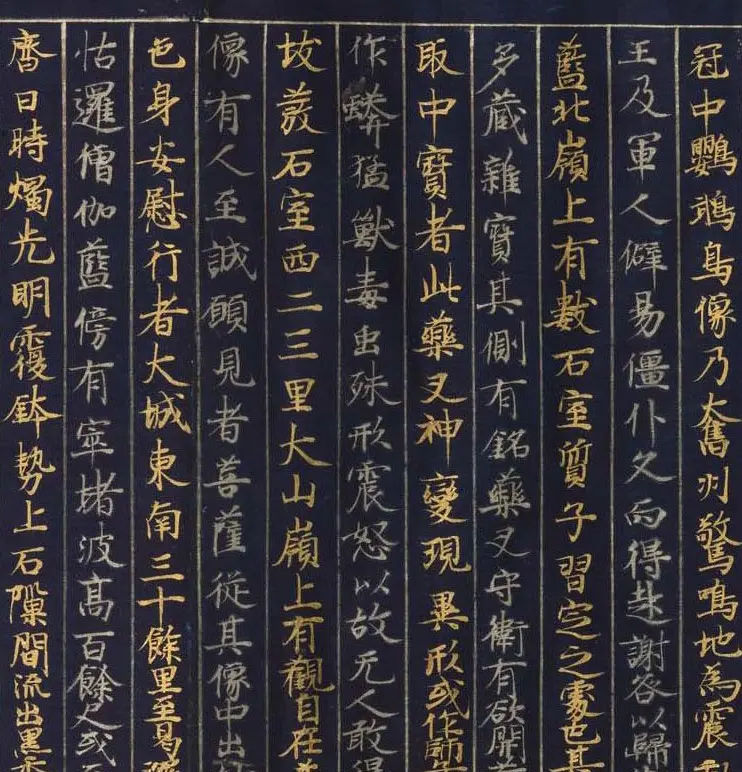 冠中鸚鵡鳥像乃奮羽驚鳴地為震
王及軍人僻易僵仆久而得起謝咎以歸
藍北嶺上有數石室質子習定之處也其
多蔵雜寶其側有銘藥叉守衛有欲開
取中寶者此藥叉神變現異形或作師
作蟒猛獸毒虫殊形震怒以故无人敢得
故義石室西二三里大山嶺上有觀自在
像有人至誠願見者菩薩從其像中出
色身安慰行者大城東南三十餘里至曷
怙邏僧伽藍傍有窣堵波髙百餘尺或
齋日時燭光明覆鉢勢上石隟間流出黒